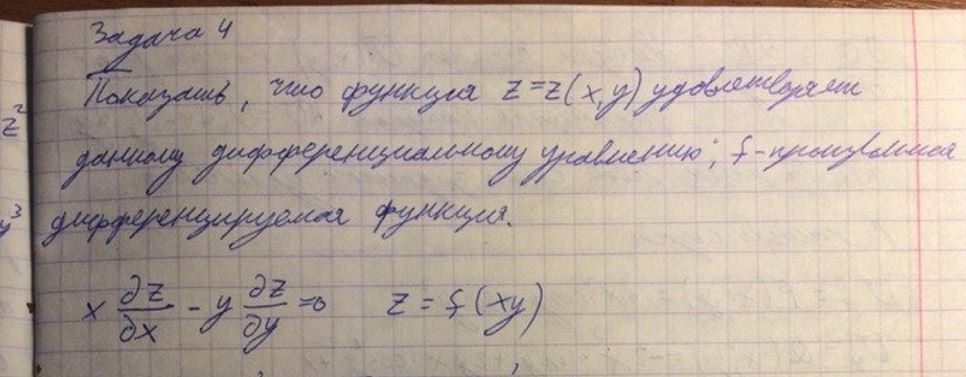 Задача 4
Показать, что функция z=z(x,y) удовлетворяет
z²
данному дифференциальному уравнению; f-произвольная
y³
дифференцируемая функция.
x ∂z/∂x - y ∂z/∂y =0 z = f(xy)